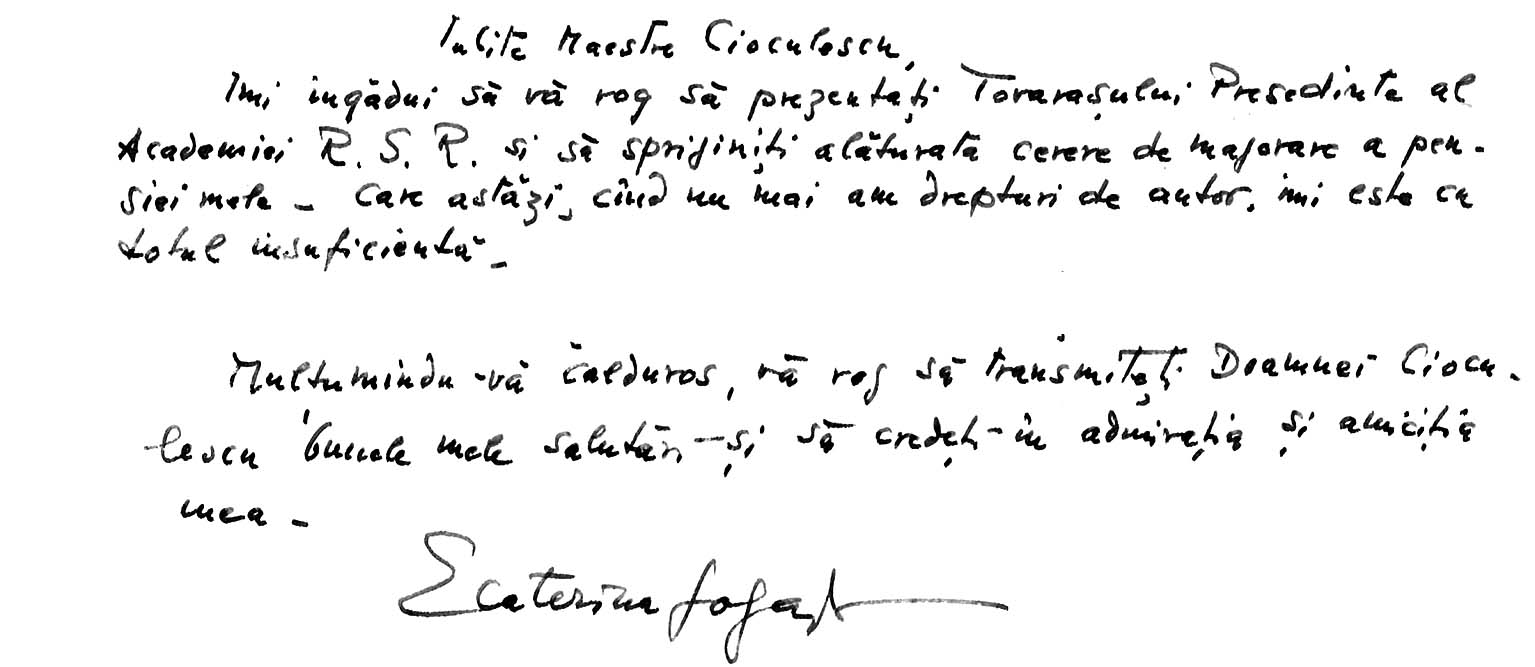 Inlite Maestre Cioculescu,
Imi ingădui să vă rog să prezentați Tovarașului Presedinte al
Academiei R. S. R. si să sprijiniți alăturată cerere de majorare a pen-
siei mele - care astăzi, cînd nu mai am drepturi de autor, imi este cu
totul insuficientă -
Multumindu-vă călduros, vă rog să transmiteți Doamnei Ciocu-
lescu bunele mele salutări - și să credeți in admirația și amiciția
mea -
Ecaterina